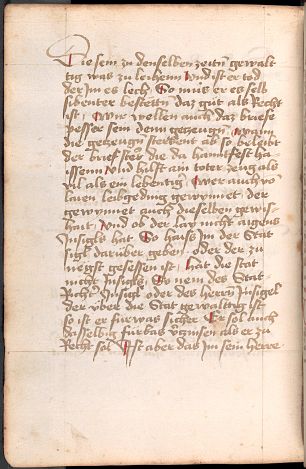 Die sein zu denselben zeitn̄ gewalt
tig was zu leihenn Und ist er tod
der Im es lech So mus er es selb
sibenter bestettn̄ daz gut als Recht
ist Wir wellen auch daz briefe
pesser sein denn getzeugn̄ Wann
die getzeugn̄ sterbent als so beleibt
der brief ster die da hanntfest ha
issenn Und hilft ain toter zeug als
vil als ein lebentig Wer auch vō
laien leibgeding gewynnet der
gewynnet auch dieselben gewis
hait Und ob der lay nicht aigens
Insigls hat So haiss Im der Stat
sigl darüber geben oder der zu
negst gesessen ist hat die stat
nicht Insigls So nem des Stat
Richt̄ Insigl oder des herrn̄ Insigel
der vber die Stat gewaltig ist
so ist er fürwas sicher Er sol auch
dasselbig fürbas v̄tzinsen als er zu
Recht sol Ist aber das Im sein herre